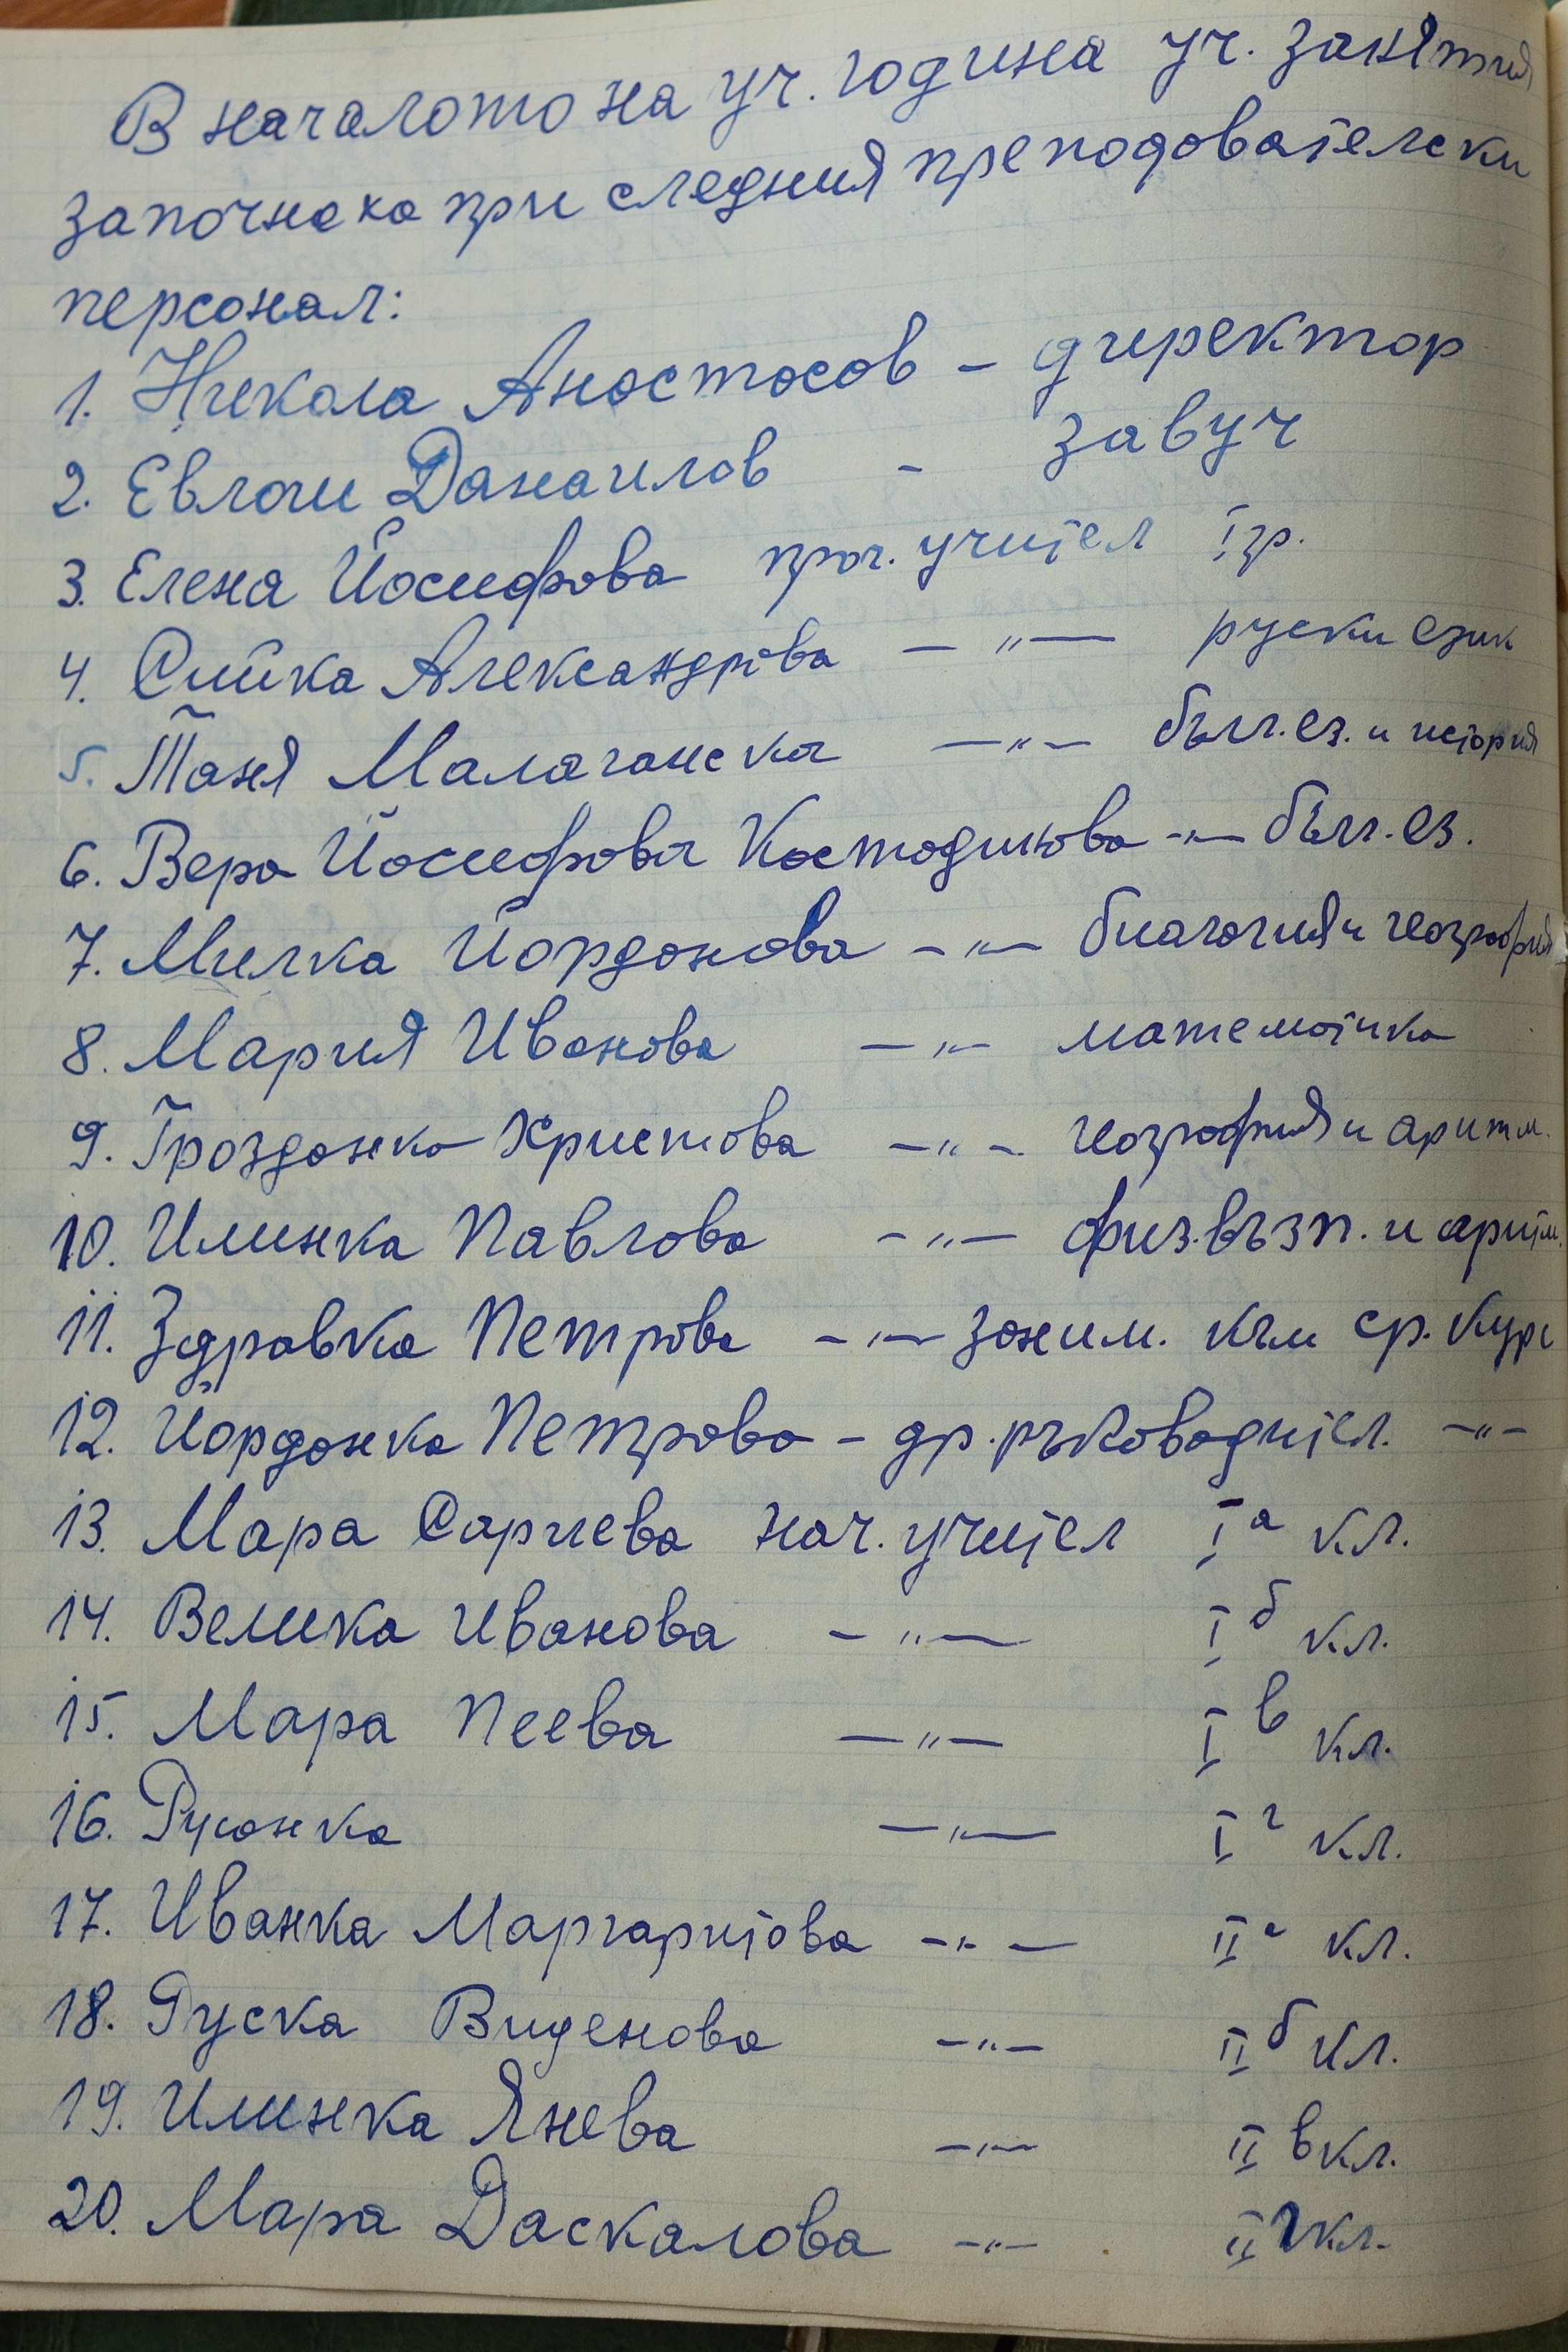 В началото на уч. година уч. занятия
започнаха при следния преподавателски
персонал:
1. Никола Анастасов - директор
2. Евлоги Данаилов - завуч
3. Елена Йосифова прог. учител I гр.
4. Сийка Александрова — " — руски език
5. Таня Малаганска — " — бълг. ез. и история
6. Вера Йосифова Костадинова - " — бълг. ез.
7. Милка Йорданова — " — биология и география
8. Мария Иванова — " — математика
9. Грозданка Христова — " — география и аритм.
10. Илинка Павлова — " — физ. възп. и аритм.
11. Здравка Петрова — " — заним. към ср. курс
12. Йорданка Петрова - др. ръководител. — " —
13. Мара Сариева нач. учител I а кл.
14. Велика Иванова — " — I б кл.
15. Мара Пеева — " — I в кл.
16. Русанка — " — I г кл.
17. Иванка Маргаритова — " — II а кл.
18. Руска Виденова — " — II б кл.
19. Илинка Янева — " — II в кл.
20. Мара Даскалова — " — II г кл.